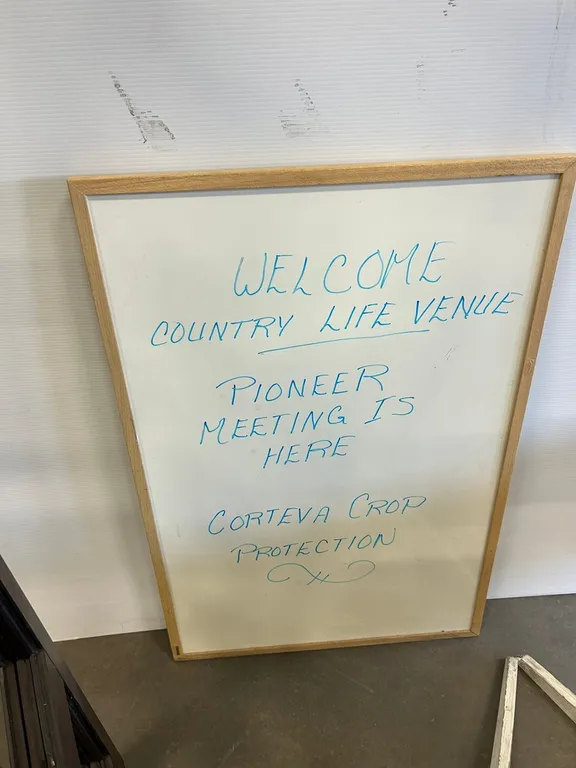 WELCOME
COUNTRY LIFE VENUE
PIONEER
MEETING IS
HERE
CORTEVA CROP
PROTECTION